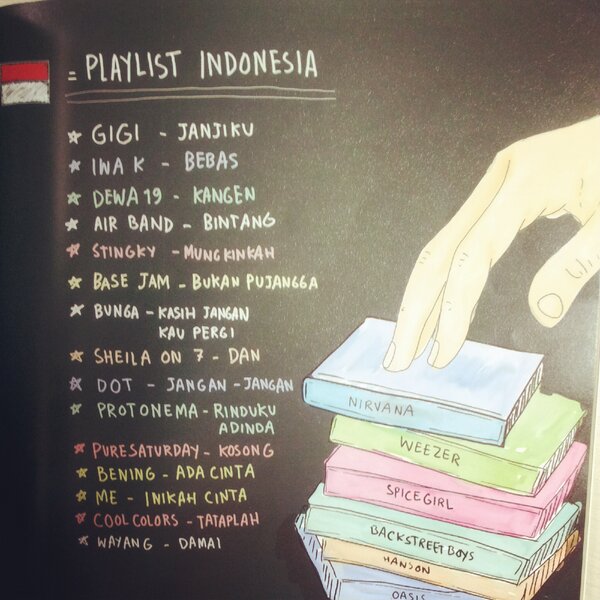 = PLAYLIST INDONESIA
GIGI - JANJIKU
IWA K - BEBAS
DEWA 19 - KANGEN
AIR BAND - BINTANG
STINGKY - MUNGKINKAH
BASE JAM - BUKAN PUJANGGA
BUNGA - KASIH JANGAN
KAU PERGI
SHEILA ON 7 - DAN
DOT - JANGAN - JANGAN
PROTONEMA - RINDUKU
ADINDA
PURESATURDAY - KOSONG
BENING - ADA CINTA
ME - INIKAH CINTA
COOLCOLORS - TATAPLAH
WAYANG - DAMAI
NIRVANA
WEEZER
SPICEGIRL
BACKSTREETBOYS
HANSON
OASIS